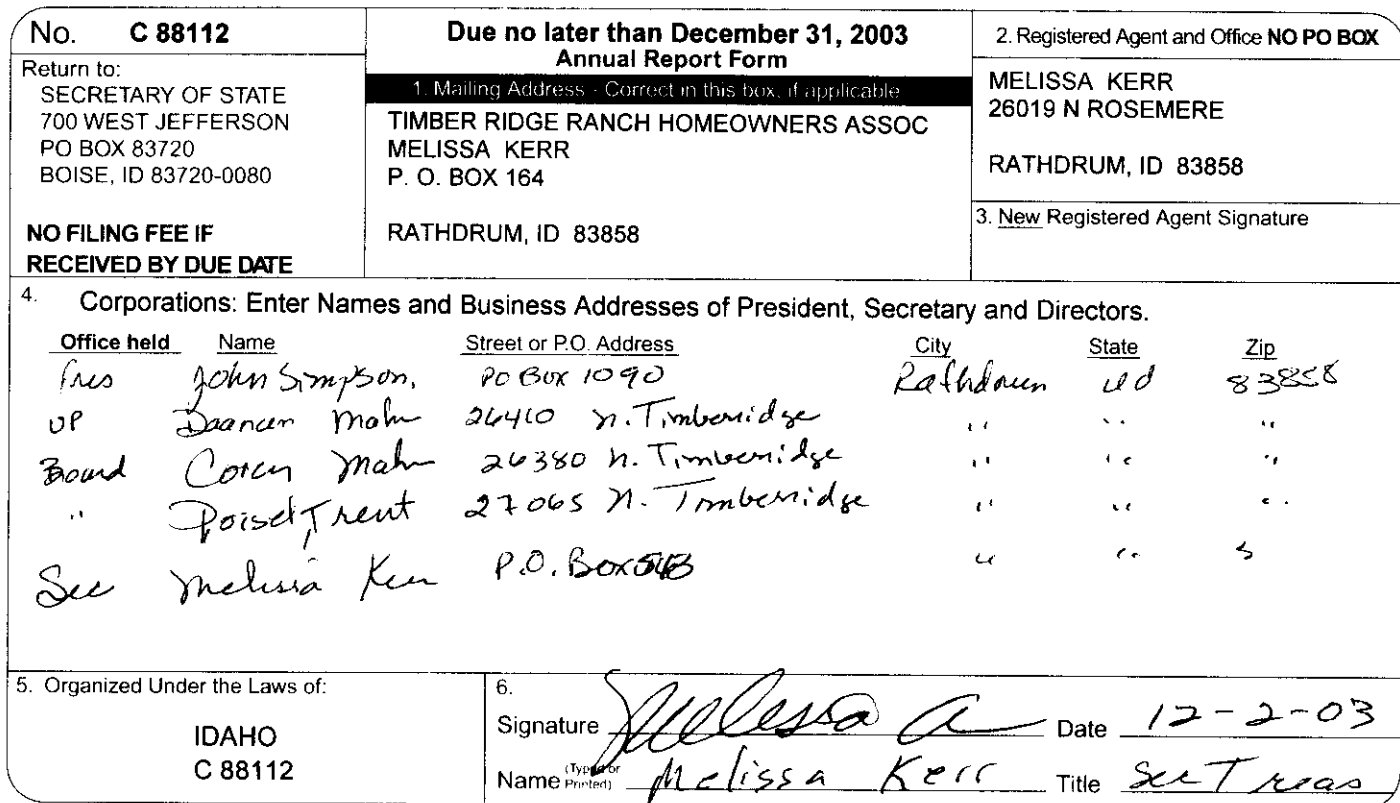 No. C 88112
Return to:
SECRETARY OF STATE
700 WEST JEFFERSON
PO BOX 83720
BOISE, ID 83720-0080
NO FILING FEE IF
RECEIVED BY DUE DATE
Due no later than December 31, 2003
Annual Report Form
1. Mailing Address - Correct in this box, if applicable
TIMBER RIDGE RANCH HOMEOWNERS ASSOC
MELISSA KERR
P. O. BOX 164
RATHDRUM, ID 83858
2. Registered Agent and Office NO PO BOX
MELISSA KERR
26019 N ROSEMERE
RATHDRUM, ID 83858
3. New Registered Agent Signature
4. Corporations: Enter Names and Business Addresses of President, Secretary and Directors.
Office held Name Street or P.O. Address City State Zip
Pres John Simpson, PO Box 1090 Rathdrum id 83858
VP 26410 N. Timberridge " " "
Board Corey 26380 N. Timberridge " " "
" Poisel, Trent 27065 N. Timberridge " " "
Sec Melissa Kerr P.O. Box " "
5. Organized Under the Laws of:
IDAHO
C 88112
6.
Signature Melissa Date 12-2-03
Name (Typed or Printed) Melissa Kerr Title Sec Treas